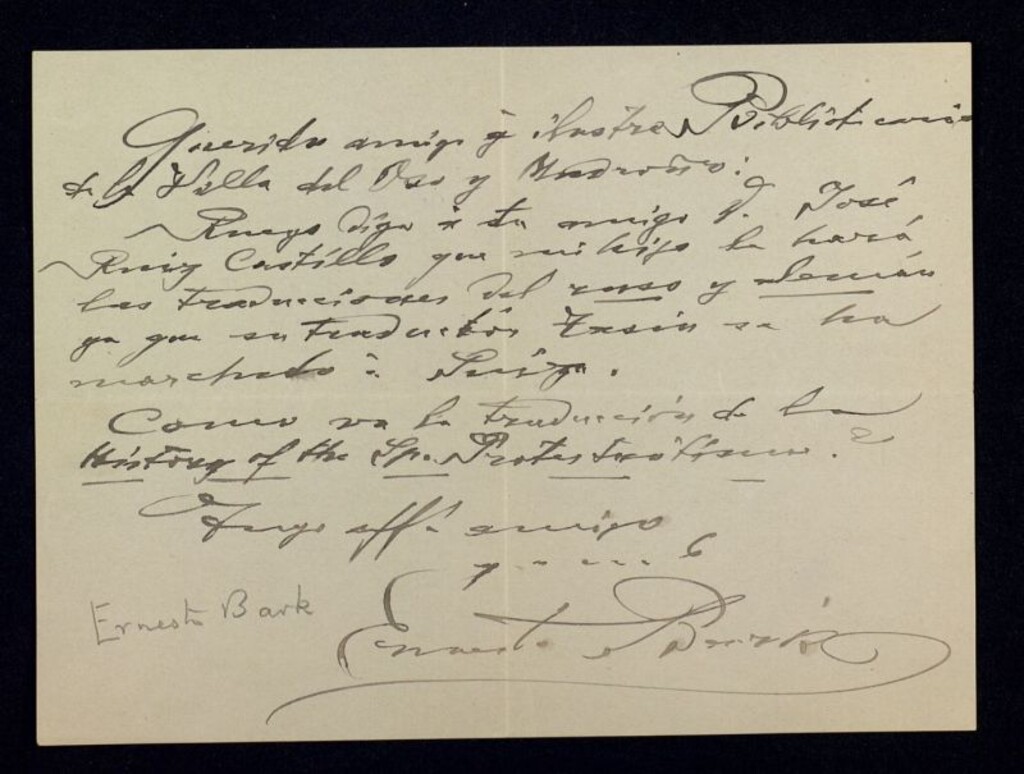 Querido amigo é ilustre Bibliotecario
de la Villa del Oso y Madroño:
Ruego diga á tu amigo D. José
Ruiz Castillo que mi hijo le hará
las traducciones del ruso y alemán
ya que su traductor Tasin se ha
marchado á Suiza.
Como va la traducción de la
History of the Sp. Protestantismus?
Tuyo affº amigo
Ernesto Bark
Ernesto Bark